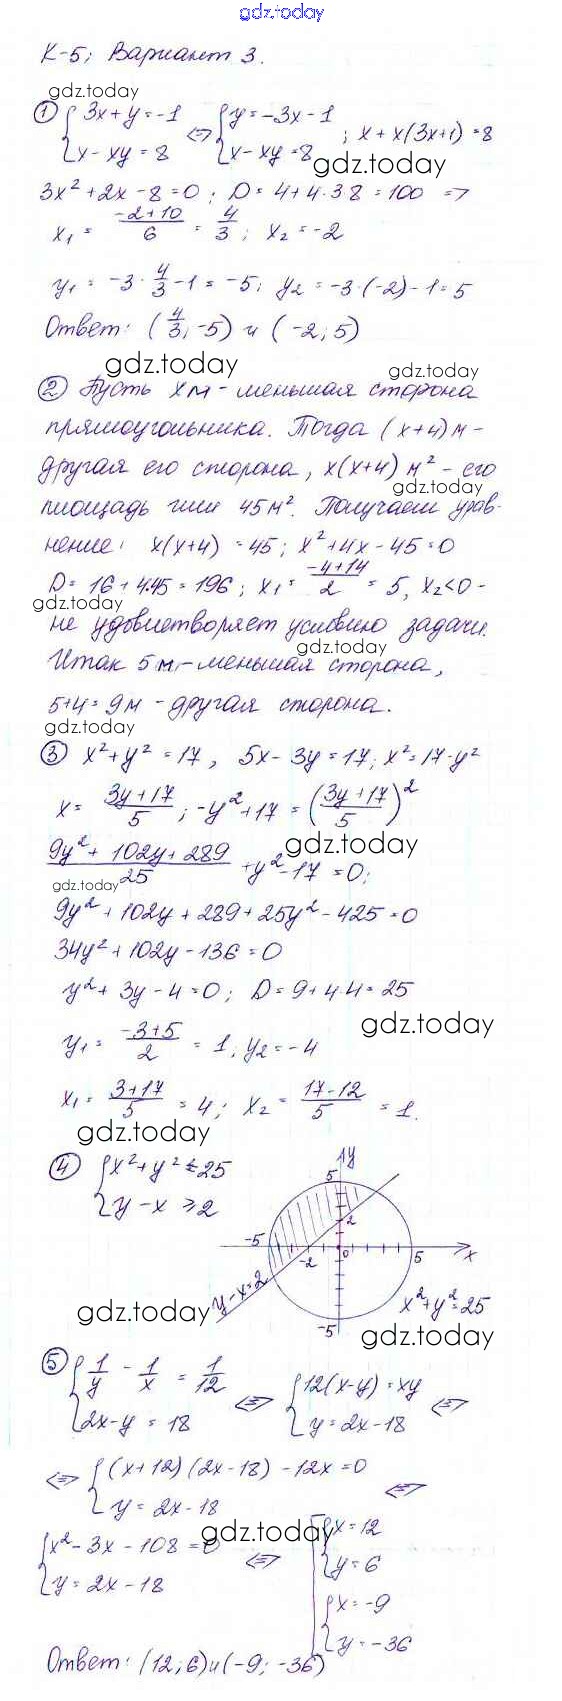 gdz.today
К-5; Вариант 3.
gdz.today
① { 3x+y=-1 ⇔ { y=-3x-1 ; x+x(3x+1)=8
x-xy=8 x-xy=8
gdz.today
3x²+2x-8=0; D=4+4·3·8=100 ⇒
x₁ = (-2+10)/6 = 4/3; x₂=-2
y₁ = -3·4/3-1=-5; y₂=-3·(-2)-1=5
Ответ: (4/3; -5) и (-2; 5)
gdz.today gdz.today
② Пусть x м - меньшая сторона
прямоугольника. Тогда (x+4) м -
другая его сторона, x(x+4) м² - его
gdz.today
площадь или 45 м². Получаем урав-
нение: x(x+4) = 45; x²+4x-45=0
D= 16+4·45=196; x₁= (-4+14)/2 = 5, x₂<0 -
gdz.today
не удовлетворяет условию задачи.
gdz.today
Итак 5 м - меньшая сторона,
5+4=9 м - другая сторона.
gdz.today
③ x²+y²=17, 5x-3y=17; x²=17-y²
x= (3y+17)/5; -y²+17=((3y+17)/5)²
gdz.today
(9y²+102y+289)/25 + y²-17=0;
gdz.today
9y²+102y+289+25y²-425=0
34y²+102y-136=0
y²+3y-4=0; D=9+4·4=25
gdz.today
y₁= (-3+5)/2 = 1; y₂=-4
x₁= (3+17)/5 = 4; x₂= (17-12)/5 = 1.
gdz.today
④ { x²+y²≤25
y-x≥2
y
5
2
-5 -2 0 5 x
y-x=2
x²+y²=25
-5
gdz.today
gdz.today
⑤ { 1/y - 1/x = 1/12 ⇔ { 12(x-y)=xy ⇔
2x-y=18 y=2x-18
⇔ { (x+12)(2x-18)-12x=0 ⇔
y=2x-18
gdz.today
{ x²-3x-108=0 ⇔ [ { x=12
y=2x-18 y=6
{ x=-9
y=-36
Ответ: (12; 6) и (-9; -36)